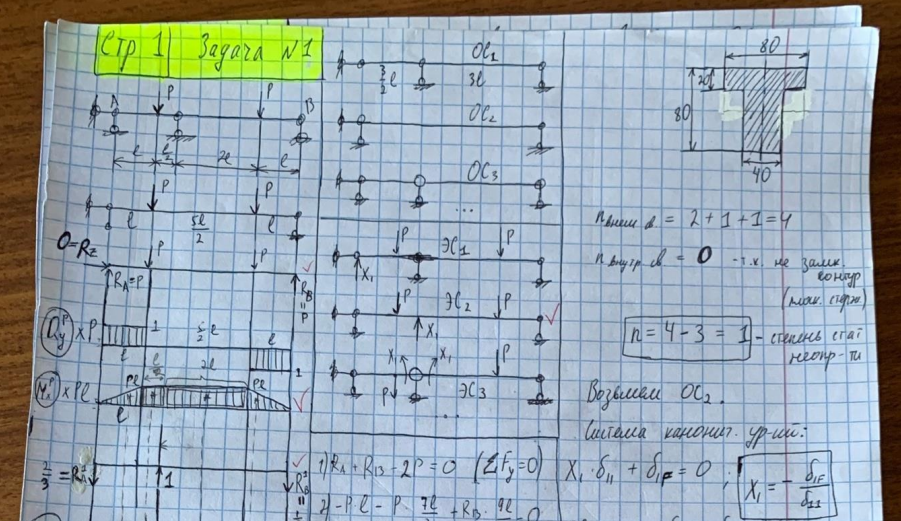 Стр 1
Задача №1
A
P
P
B
l
l/2
2l
l
P
P
l
5l/2
l
0=Rz
P
P
RA=P
RB = P
Qy^P xP
1
l
5/2 l
l
1
Mx^P xPl
Pl
2l
Pl
l
2/3 = RA
1
RB
ОС1
3/2 l
3l
ОС2
ОС3
...
ЭС1
P
P
X1
ЭС2
P
P
X1
ЭС3
X1
X1
P
P
...
1) RA + RB - 2P = 0 (ΣFy=0)
2) -P·l - P · 7l/2 + RB · 9l/2 = 0
80
20
80
40
n внеш. св = 2+1+1=4
n внутр. св = 0 - т.к. не замк. контур
(плоск. стерж.)
n = 4 - 3 = 1 - степень стат
неопр-ти
Возьмем ОС2.
Система канонич. ур-ий:
X1 · δ11 + δ1F = 0 ; X1 = - δ1F/δ11